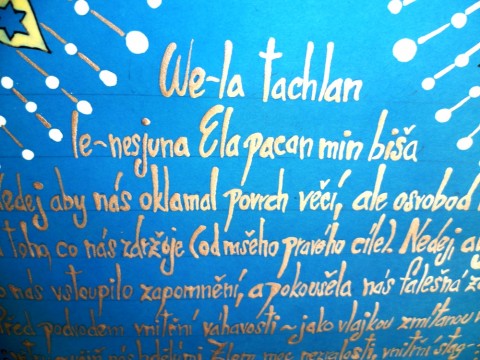 We-la tachlan
le-nesjuna Ela pacan min biša
Nedej aby nás oklamal povrch věcí, ale osvobod
toho, co nás zdržóje (od našeho pravého cíle). Nedej, a
nás vstoupilo zapomnění, a pokoušela nás falešná
Před podvodem vnitřní váhavosti ~ jako vlajkou zmítanou